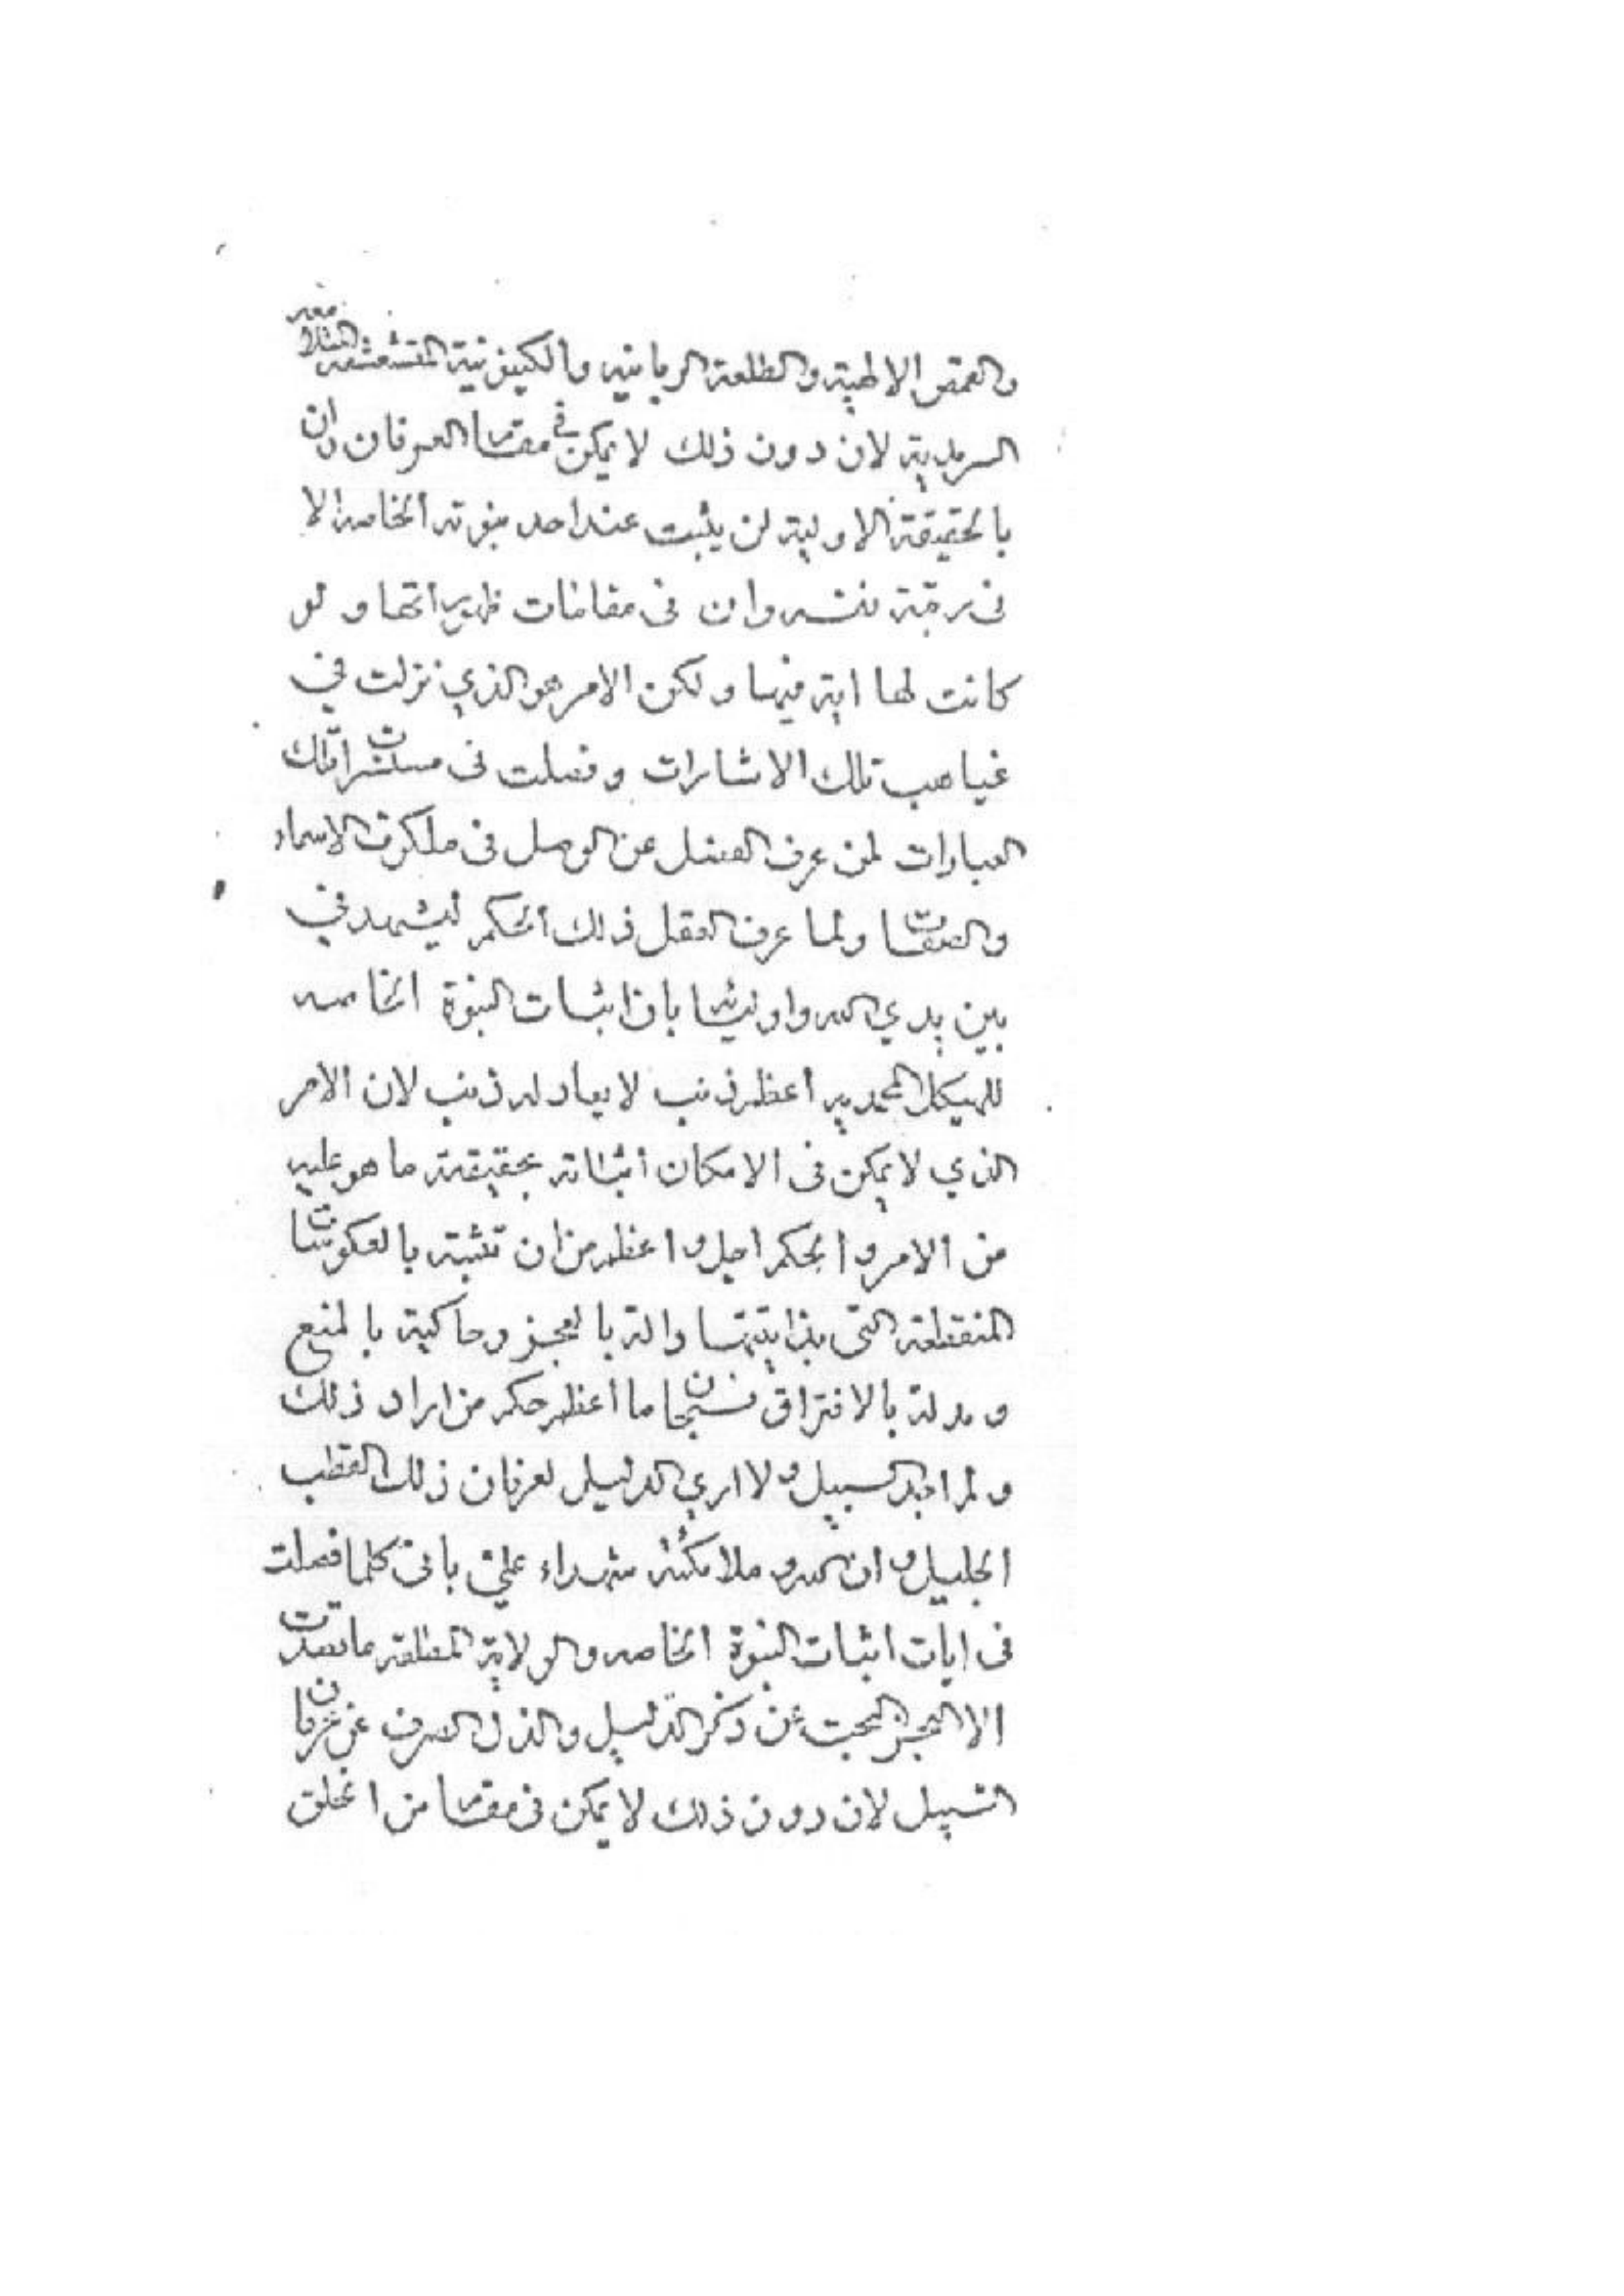 والقمص الالهية والطلعة الربانيه والكينونية المتشعشعة المتلا معه
السرمدية لان دون ذلك لا يمكن في مقام العرفان وان
بالحقيقة الاولية لن يثبت عند احد نبوته الخاصه الا
فى رتبة نفسه وان فى مقامات ظهوراتها ولو
كانت لها اية فيها ولكن الامر هو الذي نزلت في
غياهب تلك الاشارات وفصلت فى مستسرات تلك
العبارات لمن عرف الفصل عن الوصل فى ملكوت الاسماء
والصفات ولما عرف العقل ذلك الحكم ليشهد في
بين يدي الله واوليائه بان اثبات النبوة الخاصه
للهيكل المحمديه اعظم ذنب لا يعادله ذنب لان الامر
الذي لا يمكن فى الامكان اثباته بحقيقة ما هو عليه
من الامر والحكم اجل واعظم من ان تثبته بالعكوسات
المنقطعة التى بذاتيتها دالة بالعجز وحاكية بالمنع
ومدلة بالافتراق فسبحان ما اعظم حكم من اراد ذلك
ولم اجد السبيل ولا اري الدليل لعرفان ذلك القطب
الجليل وان الله وملائكته شهداء علي بانى كلما فصلت
فى ايات اثبات النبوة الخاصه والولاية المطلقة ما قصدت
الا العجز البحت عن ذكر الدليل والذل الصرف عن عرفان
السبيل لان دون ذلك لا يمكن فى مقام من الخلق